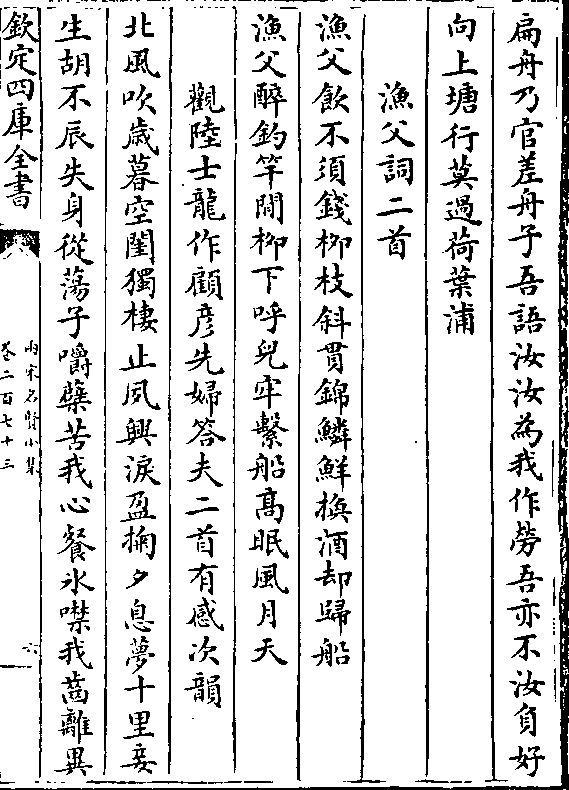 扁舟乃官差舟子吾語汝汝為我作勞吾亦不汝負好
向上塘行莫過荷葉浦
漁父詞二首
漁父飲不須錢柳枝斜貫錦鱗鮮換酒却歸船
漁父醉釣竿閒柳下呼兒牢繫船髙眠風月天
觀陸士龍作顧彦先婦答夫二首有感次韻
北風吹歳暮空閨獨棲止夙興淚盈掬夕息夢十里妾
生胡不辰失身從蕩子嚼蘖苦我心餐氷噤我齒離異
欽定四庫全書
兩宋名賢小集
卷二百七十三
六